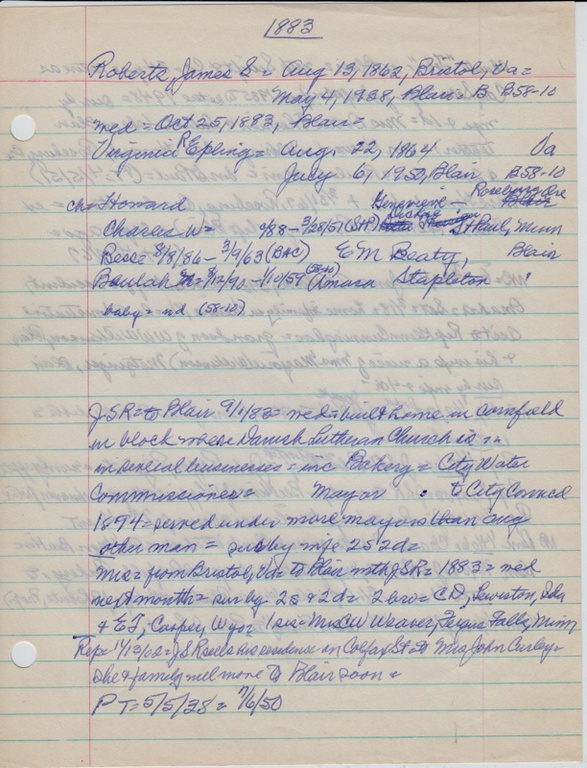 1883
Roberts, James S = Aug 13, 1862, Bristol, Va =
May 4, 1938, Blair = B B58-10
med = Oct 25, 1883, Blair =
Virginia R Epling = Aug. 22, 1864 Va
July 6, 1950, Blair B58-10
ch = Howard Genevieve — Roseburg Ore
Charles W = 9/88 - 3/28/51 (StP) St Paul, Minn
Bess = 8/8/86 - 3/9/63 (BAC) E M Beaty, Blair
Beulah = 8/12/90 - 1/10/59 (58-10) Amasa Stapleton
baby = nd (58-10)
J-SR = to Blair 9/1/82 = med = built home in cornfield
in block where Danish Lutheran Church is =
in several businesses = inc Bakery = City Water
Commissioner = Mayor to City Council
1894 = served under more mayors than any
other man = sur by wife 2s 2d =
Mrs = from Bristol, Va = to Blair mth JSR = 1883 = med
next month = sur by 2s & 2d = 2 bro = CD, Lewiston, Ida
& EJ, Casper, Wyo 1 sis = Mrs CW Weaver, Fergus Falls, Minn
Rep = 1/13/02 = JSR sells his residence on Colfax St to Mrs John Curley =
She & family will move to Blair soon =
PT = 5/5/38 = 7/6/50